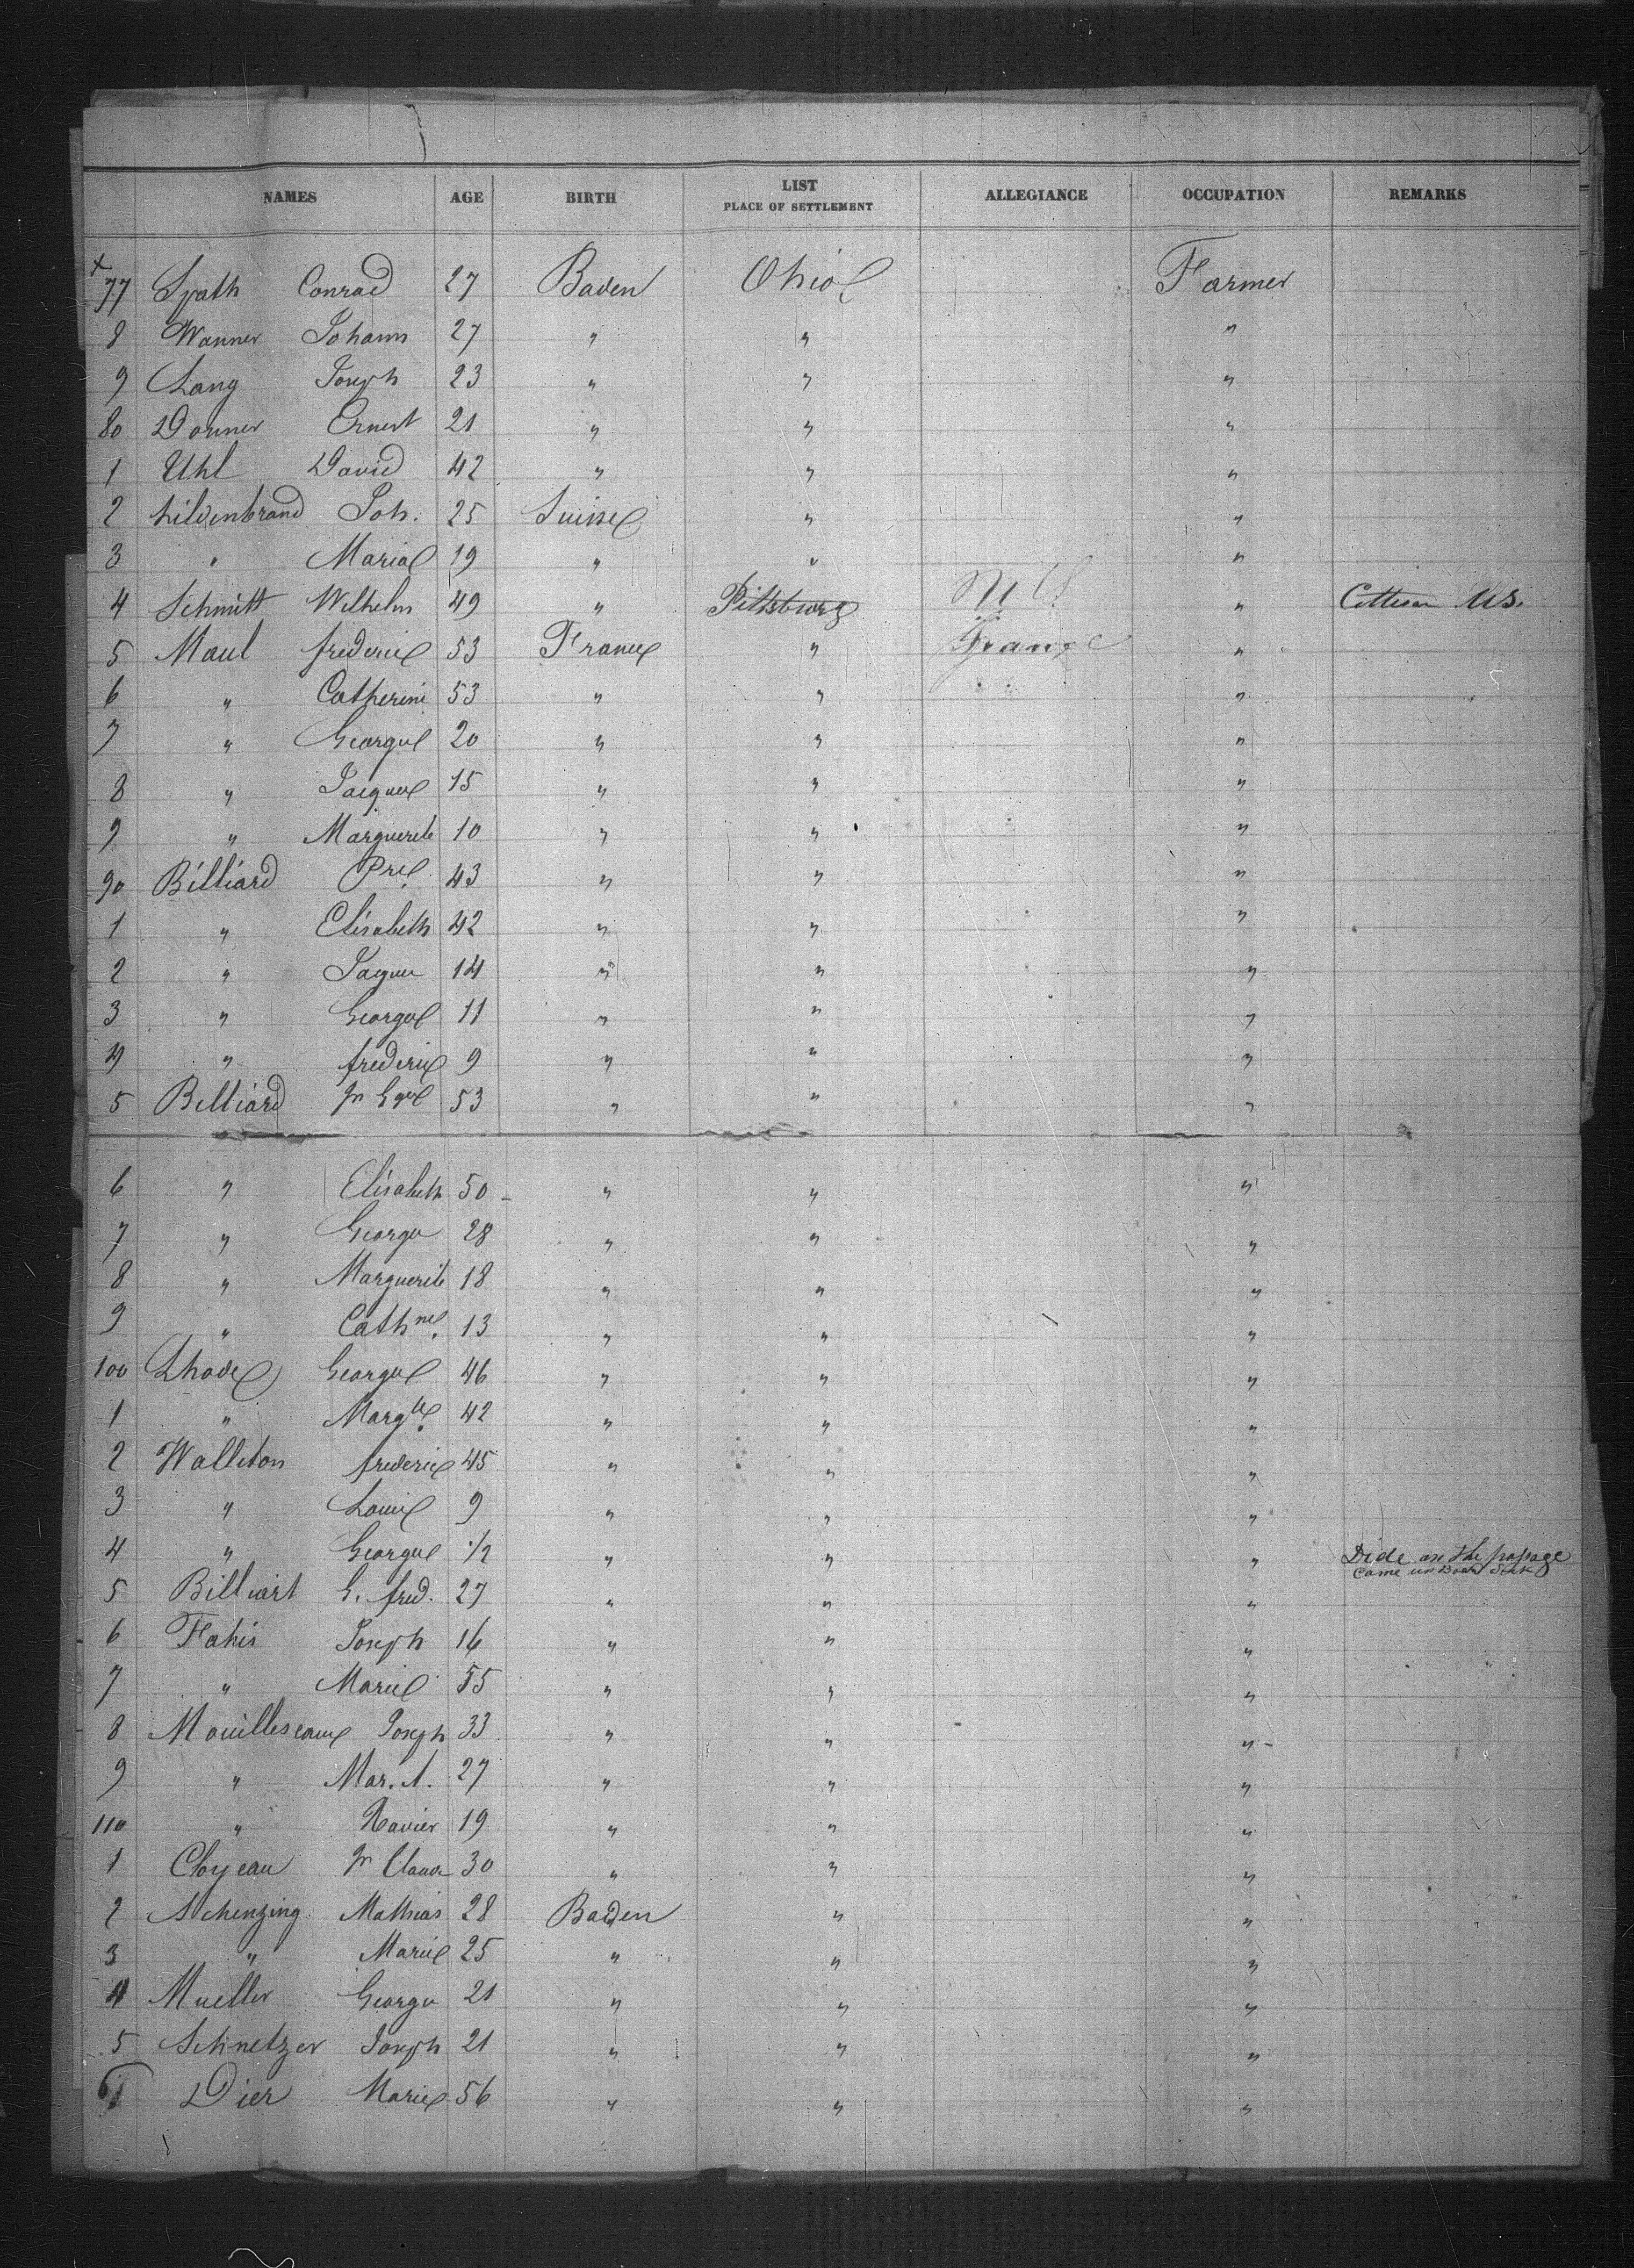 NAMES AGE BIRTH LIST PLACE OF SETTLEMENT ALLEGIANCE OCCUPATION REMARKS
+
77 Spath Conrad 27 Baden Ohio Farmer
8 Wanner Johann 27 " " "
9 Lang Joseph 23 " " "
80 Donner Ernest 21 " " "
1 Uhl David 42 " " "
2 hildenbrand Joh. 25 Suisse " "
3 " Maria 19 " " "
4 Schmitt Wilhelm 49 " Pittsburg U S " Cittisen US.
5 Maul frederic 53 France " France "
6 " Catherine 53 " " "
7 " George 20 " " "
8 " Jacque 15 " " "
9 " Marguerite 10 " " "
90 Billiard Pre. 43 " " "
1 " Elisabeth 42 " " "
2 " Jaque 14 " " "
3 " George 11 " " "
4 " frederic 9 " " "
5 Billiard Jn Gge 53 " " "
6 " Elisabeth 50 " " "
7 " George 28 " " "
8 " Marguerite 18 " " "
9 " Cathne. 13 " " "
100 Lhode George 46 " " "
1 " Margte. 42 " " "
2 Walleton frederic 45 " " "
3 " Louis 9 " " "
4 " George 1/2 " " " Dide on the passage
Came on Board Sick
5 Billiart G. fred. 27 " " "
6 Fahis Joseph 16 " " "
7 " Marie 55 " " "
8 Mouilleseaux Joseph 33 " " "
9 " Mar. A. 27 " " "
110 " Xavier 19 " " "
1 Cloyeau Jn Claude 30 " " "
2 Schenzing Mathias 28 Baden " "
3 " Marie 25 " " "
4 Mueller George 21 " " "
5 Schnetzer Joseph 21 " " "
6 Dier Marie 56 " " "